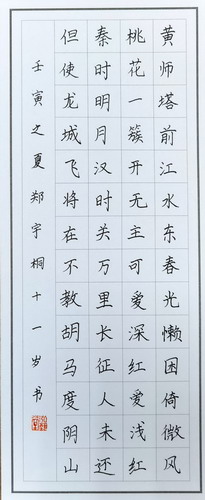 黄师塔前江水东春光懒困倚微风
桃花一簇开无主可爱深红爱浅红
秦时明月汉时关万里长征人未还
但使龙城飞将在不教胡马度阴山
壬寅之夏郑宇桐十一岁书